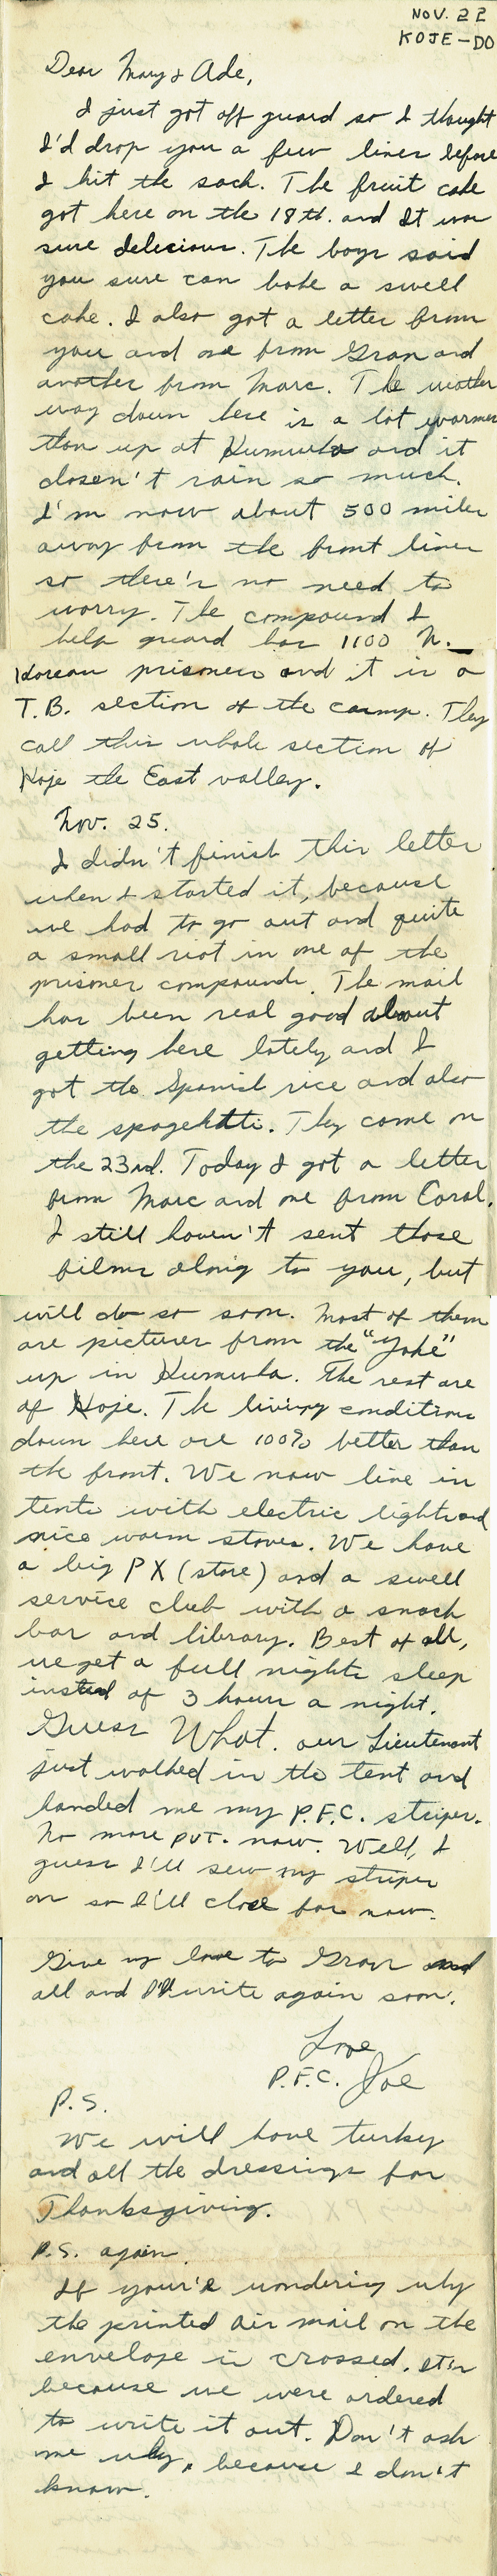 NOV. 22
KOJE-DO
Dear Mary & Ade,
I just got off guard so I thought
I'd drop you a few lines before
I hit the sack. The fruit cake
got here on the 18th. and It was
sure delecious. The boys said
you sure can bake a swell
cake. I also got a letter from
you and one from Gran and
another from Marc. The weather
way down here is a lot warmer
than up at Kumwha and it
dosen't rain so much.
I'm now about 500 miles
away from the front lines
so there's no need to
worry. The compound I
help guard has 1100 N.
Korean prisoners and it is a
T.B. section of the camp. They
call this whole section of
Koje the East valley.
Nov. 25.
I didn't finish this letter
when I started it, because
we had to go out and quite
a small riot in one of the
prisoner compounds. The mail
has been real good about
getting here lately and I
got the Spanish rice and also
the spagehtti. They came on
the 23rd. Today I got a letter
from Marc and one from Coral.
I still haven't sent those
films along to you, but
will do so soon. Most of them
are pictures from the "Yoke"
up in Kumwha. The rest are
of Koje. The living conditions
down here are 100% better than
the front. We now live in
tents with electric lights and
nice warm stoves. We have
a big PX (store) and a swell
service club with a snack
bar and library. Best of all,
we get a full nights sleep
insted of 3 hours a night.
Guess What. our Lieutenant
just walked in the tent and
handed me my P.F.C. stripes.
No more PVT. now. Well, I
guess I'll sew my stripes
on so I'll close for now.
Give my love to Gran and
all and I'll write again soon.
Love
P.F.C. Joe
P.S.
We will have turky
and all the dressings for
Thanksgiving.
P.S. again.
If your'e wondering why
the printed air mail on the
envelope is crossed. It's
because we were ordered
to write it out. Don't ask
me why, because I don't
know.